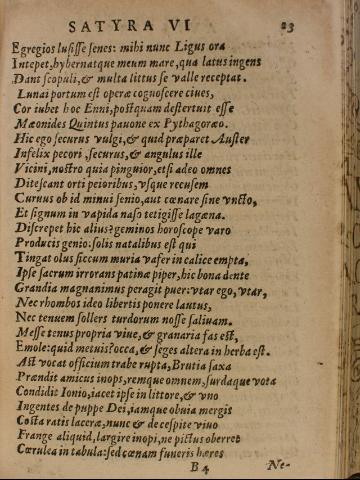 SATYRA VI 23
Egregios lusisse senes: mihi nunc Ligus ora
Intepet, hybernatque meum mare, qua latus ingens
Dant scopuli, & multa littus se valle receptat.
Lunai portum est operæ cognoscere ciues,
Cor iubet hoc Enni, postquam destertuit esse
Mæonides Quintus pauone ex Pythagoræo.
Hic ego securus vulgi, & quid præparet Auster
Infelix pecori, securus, & angulus ille
Vicini, nostro quia pinguior, etsi adeo omnes
Ditescant orti peioribus, vsque recusem
Curuus ob id minui senio, aut cœnare sine vncto,
Et signum in vapida naso tetigisse lagœna.
Discrepet hic alius? geminos horoscope varo
Producis genio: solis natalibus est qui
Tingat olus siccum muria vafer in calice empta,
Ipse sacrum irrorans patinæ piper, hic bona dente
Grandia magnanimus peragit puer: vtar ego, vtar,
Nec rhombos ideo libertis ponere lautus,
Nec tenuem sollers turdorum nosse saliuam.
Messe tenus propria viue, & granaria fas est,
Emole: quid metuis? occa, & seges altera in herba est.
Ast vocat officium trabe rupta, Brutia saxa
Prændit amicus inops, remque omnem, surdaque vota
Condidit Ionio, iacet ipse in littore, & vno
Ingentes de puppe Dei, iamque obuia mergis
Costa ratis laceræ, nunc & de cespite viuo
Frange aliquid, largire inopi, ne pictus oberret
Cœrulea in tabula: sed cœnam funeris hæres
B 4 Ne-